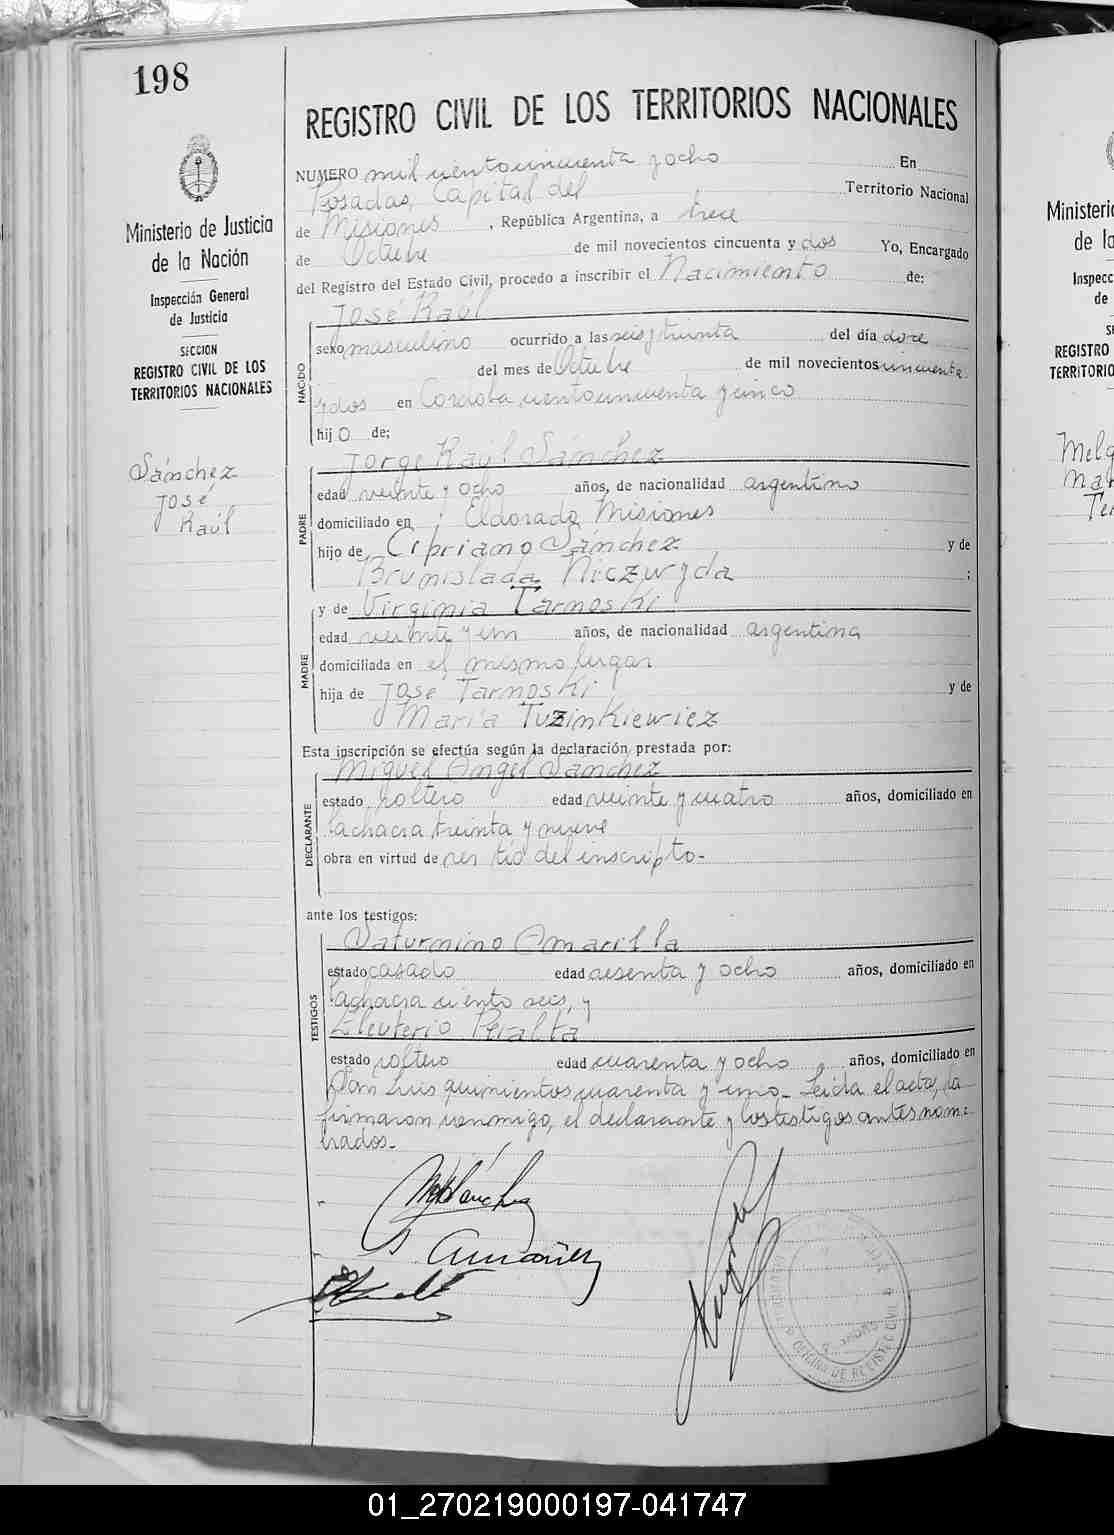 198
REGISTRO CIVIL DE LOS TERRITORIOS NACIONALES
Ministerio de Justicia
de la Nación
Inspección General
de Justicia
SECCION
REGISTRO CIVIL DE LOS
TERRITORIOS NACIONALES
Sánchez
José
Raúl
NUMERO mil cientocincuenta y ocho En
Posadas, Capital del Territorio Nacional
de Misiones, República Argentina, a trece
de Octubre de mil novecientos cincuenta y dos Yo, Encargado
del Registro del Estado Civil, procedo a inscribir el Nacimiento de:
NACIDO
José Raúl
sexo masculino ocurrido a las seis y treinta del día doce
del mes de Octubre de mil novecientos cincuenta
y dos en Cordoba cientocincuenta y cinco
hijo de;
PADRE
Jorge Raúl Sánchez
edad veinte y ocho años, de nacionalidad argentino
domiciliado en Eldorado Misiones
hijo de Cipriano Sánchez y de
Brunislada Niczwyda ;
MADRE
y de Virginia Tarnoski
edad veinte y un años, de nacionalidad argentina
domiciliada en el mismo lugar
hija de José Tarnoski y de
María Tuzinkiewicz
Esta inscripción se efectúa según la declaración prestada por:
DECLARANTE
Miguel Angel Sánchez
estado soltero edad veinte y cuatro años, domiciliado en
la chacra treinta y nueve
obra en virtud de ser tio del inscripto.-
ante los testigos:
TESTIGOS
Saturnino Amarilla
estado casado edad sesenta y ocho años, domiciliado en
la chacra ciento seis, y
Eleuterio Peralta
estado soltero edad cuarenta y ocho años, domiciliado en
San Luis quinientos cuarenta y uno.- Leida el acta, la
firmaron conmigo, el declarante y los testigos antes nom=
brados.-
OFICINA DE REGISTRO CIVIL
Ministerio
de la
Inspecc
de
REGISTRO
TERRITORIO
01_270219000197-041747